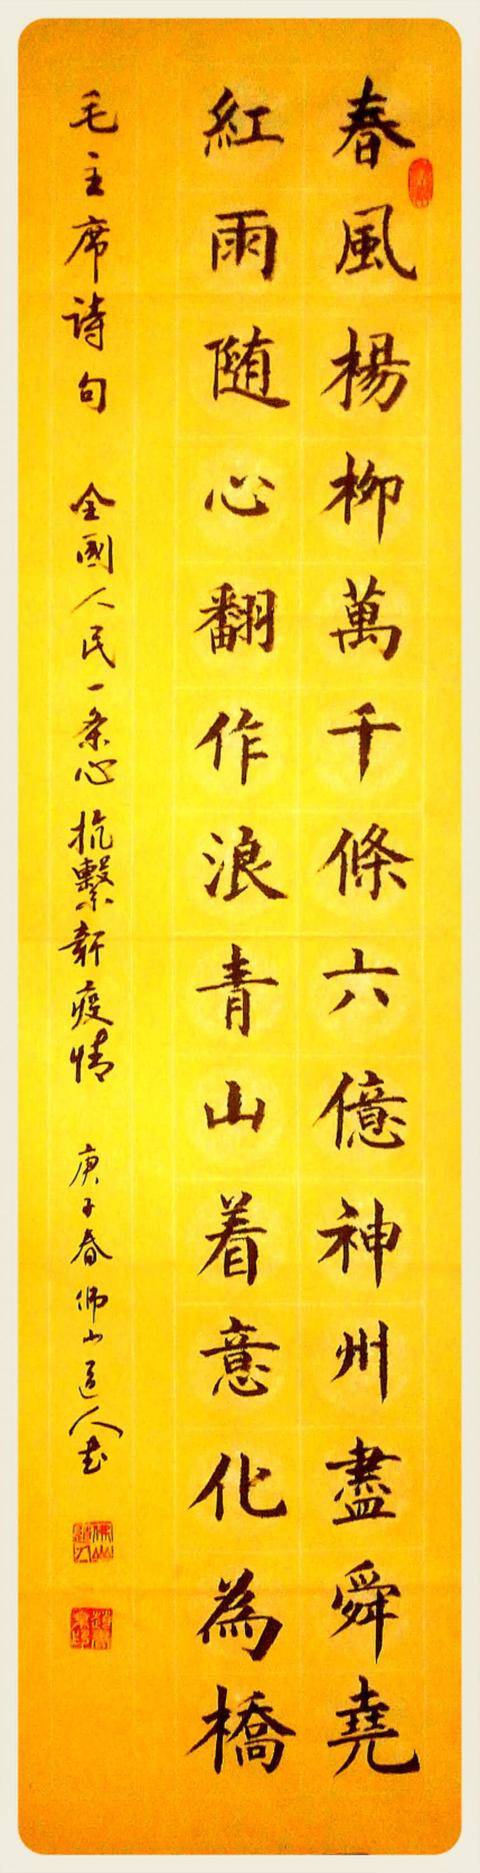 春風楊柳萬千條六億神州盡舜堯
紅雨随心翻作浪青山着意化為橋
毛主席诗句 全國人民一条心抗擊新疫情 庚子春佛山道人书
佛山道人